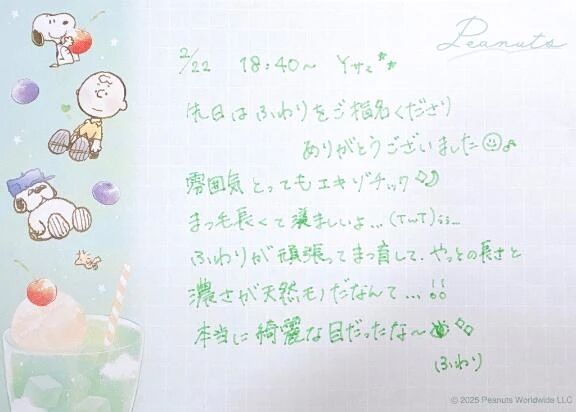 Peanuts
2/22 18:40〜 Yサマ
先日はふわりをご指名くださり
ありがとうございました
雰囲気とってもエキゾチック
まつ毛長くて羨ましいよ…(TωT)
ふわりが頑張ってまつ育して、やっとの長さと
濃さが天然モノだなんて…!!
本当に綺麗な目だったな〜
ふわり
© 2025 Peanuts Worldwide LLC